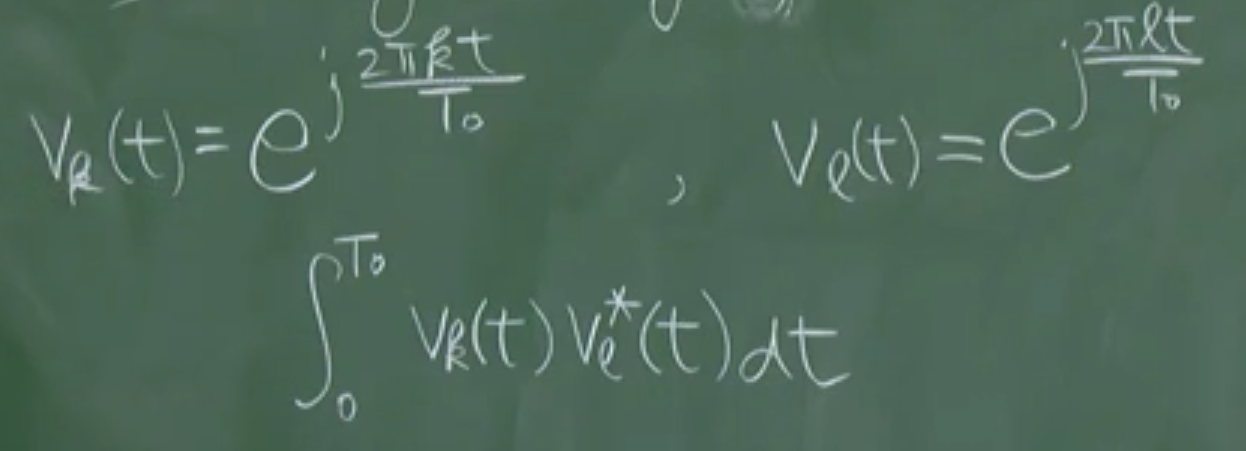 V_k(t) = e^{j\frac{2πkt}{T_0}} , V_ℓ(t) = e^{j\frac{2πℓt}{T_0}}
∫_0^{T_0} V_k(t) V_ℓ^*(t) dt